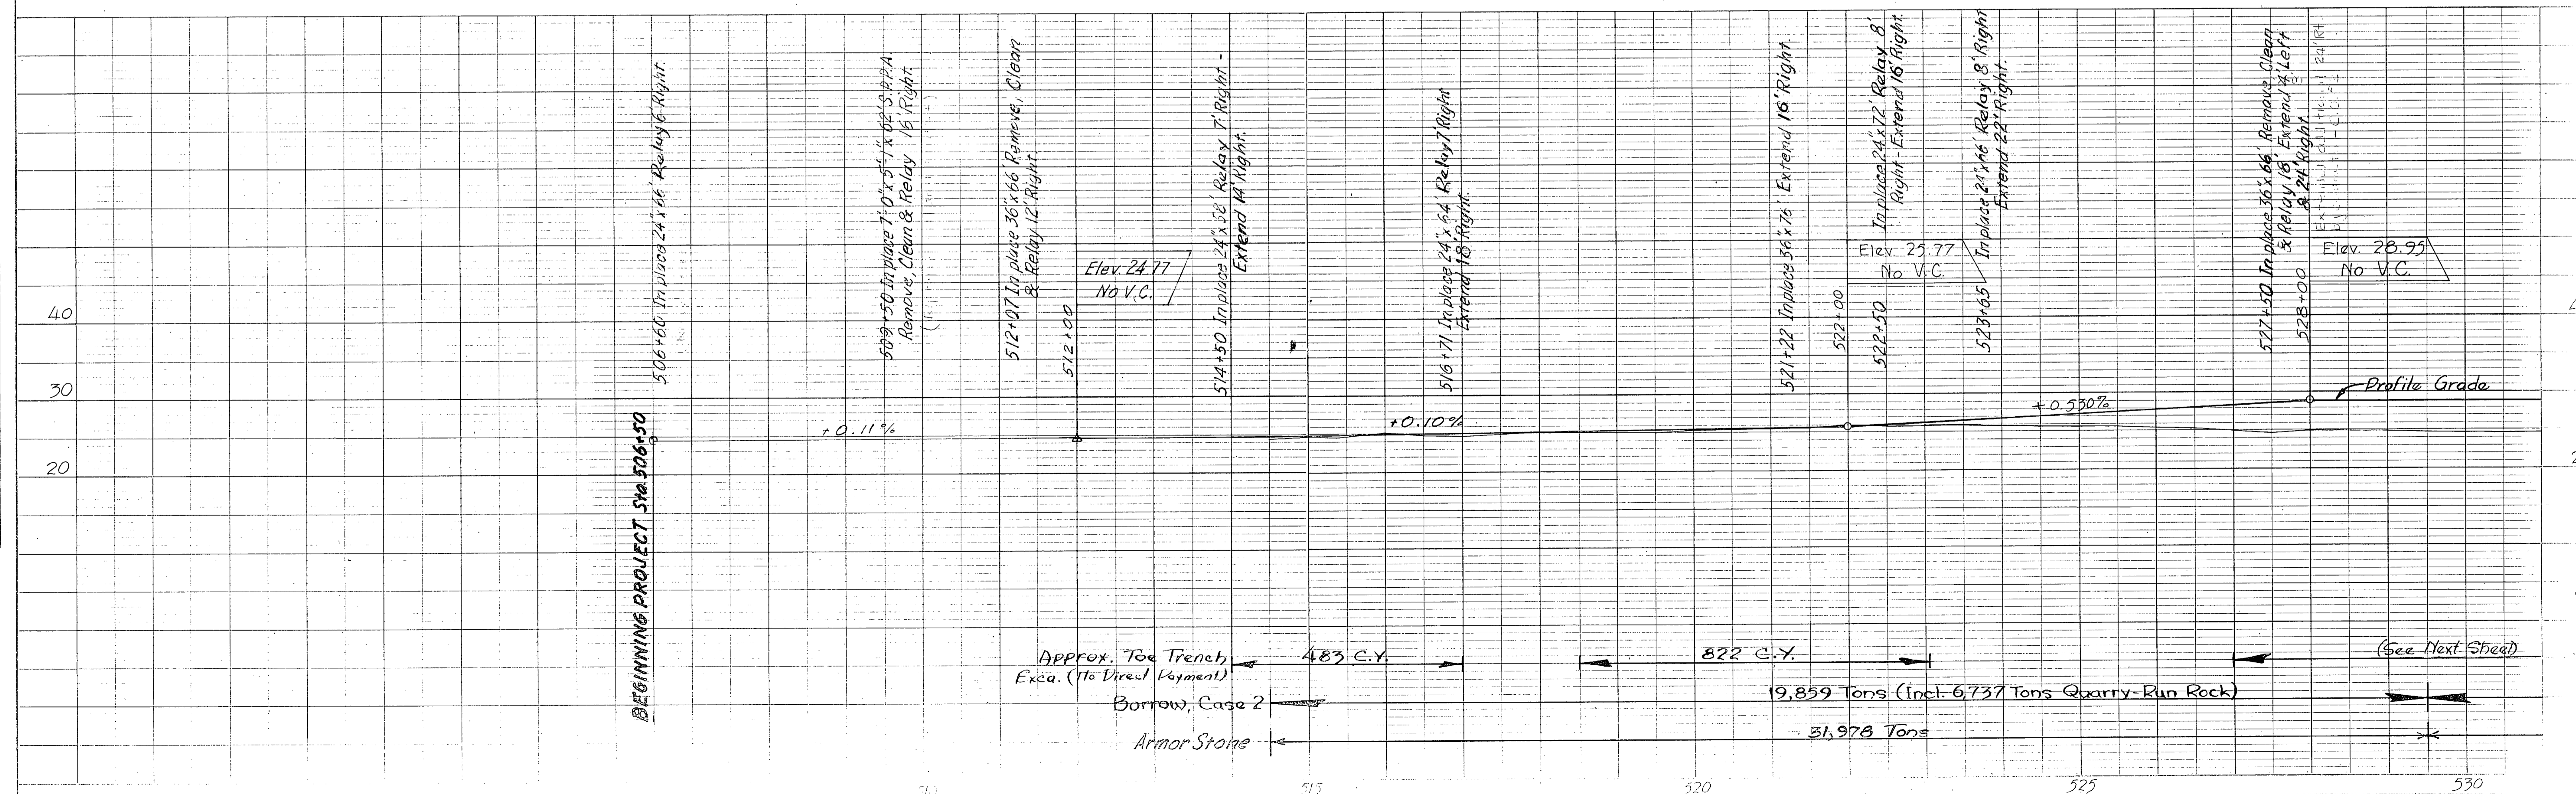 506+60 In place 24"x66' Relay 6' Right.
509+50 In place 7'-0"x5'-1"x62' S.P.P.A.
Remove, Clean & Relay 16' Right.
512+07 In place 36"x66' Remove, Clean
& Relay 12' Right.
512+00
Elev. 24.77
No V.C.
514+50 In place 24"x58' Relay 7' Right -
Extend 14' Right.
516+71 In place 24"x64' Relay 7' Right
Extend 18' Right.
521+22 In place 36"x76' Extend 16' Right.
522+00
Elev. 25.77
No V.C.
522+50 In place 24"x72' Relay 8'
Right - Extend 16' Right.
523+65 In place 24"x66' Relay 8' Right
Extend 22' Right.
527+50 In place 36"x66' Remove, Clean
& Relay 18' Extend 4' Left
& 24' Right.
528+00
Elev. 28.95
No V.C.
40
30
20
BEGINNING PROJECT Sta. 506+50
+0.11%
+0.10%
+0.530%
Profile Grade
Approx. Toe Trench
Exca. (No Direct Payment)
483 C.Y.
822 C.Y.
(See Next Sheet)
Borrow, Case 2
19,859 Tons (Incl. 6,737 Tons Quarry-Run Rock)
Armor Stone
31,978 Tons
510
515
520
525
530